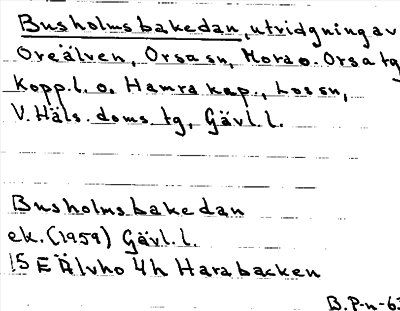 Busholmsbakedan, utvidgning av
Oreälven, Orsa sn, Mora o. Orsa tg
Kopp.l. o. Hamra kap., Los sn,
V. Häls. doms. tg, Gävl.l.
Busholmsbakedan
ek. (1959) Gävl.l.
15 E Älvho 4h Harabacken
B. P-n-63